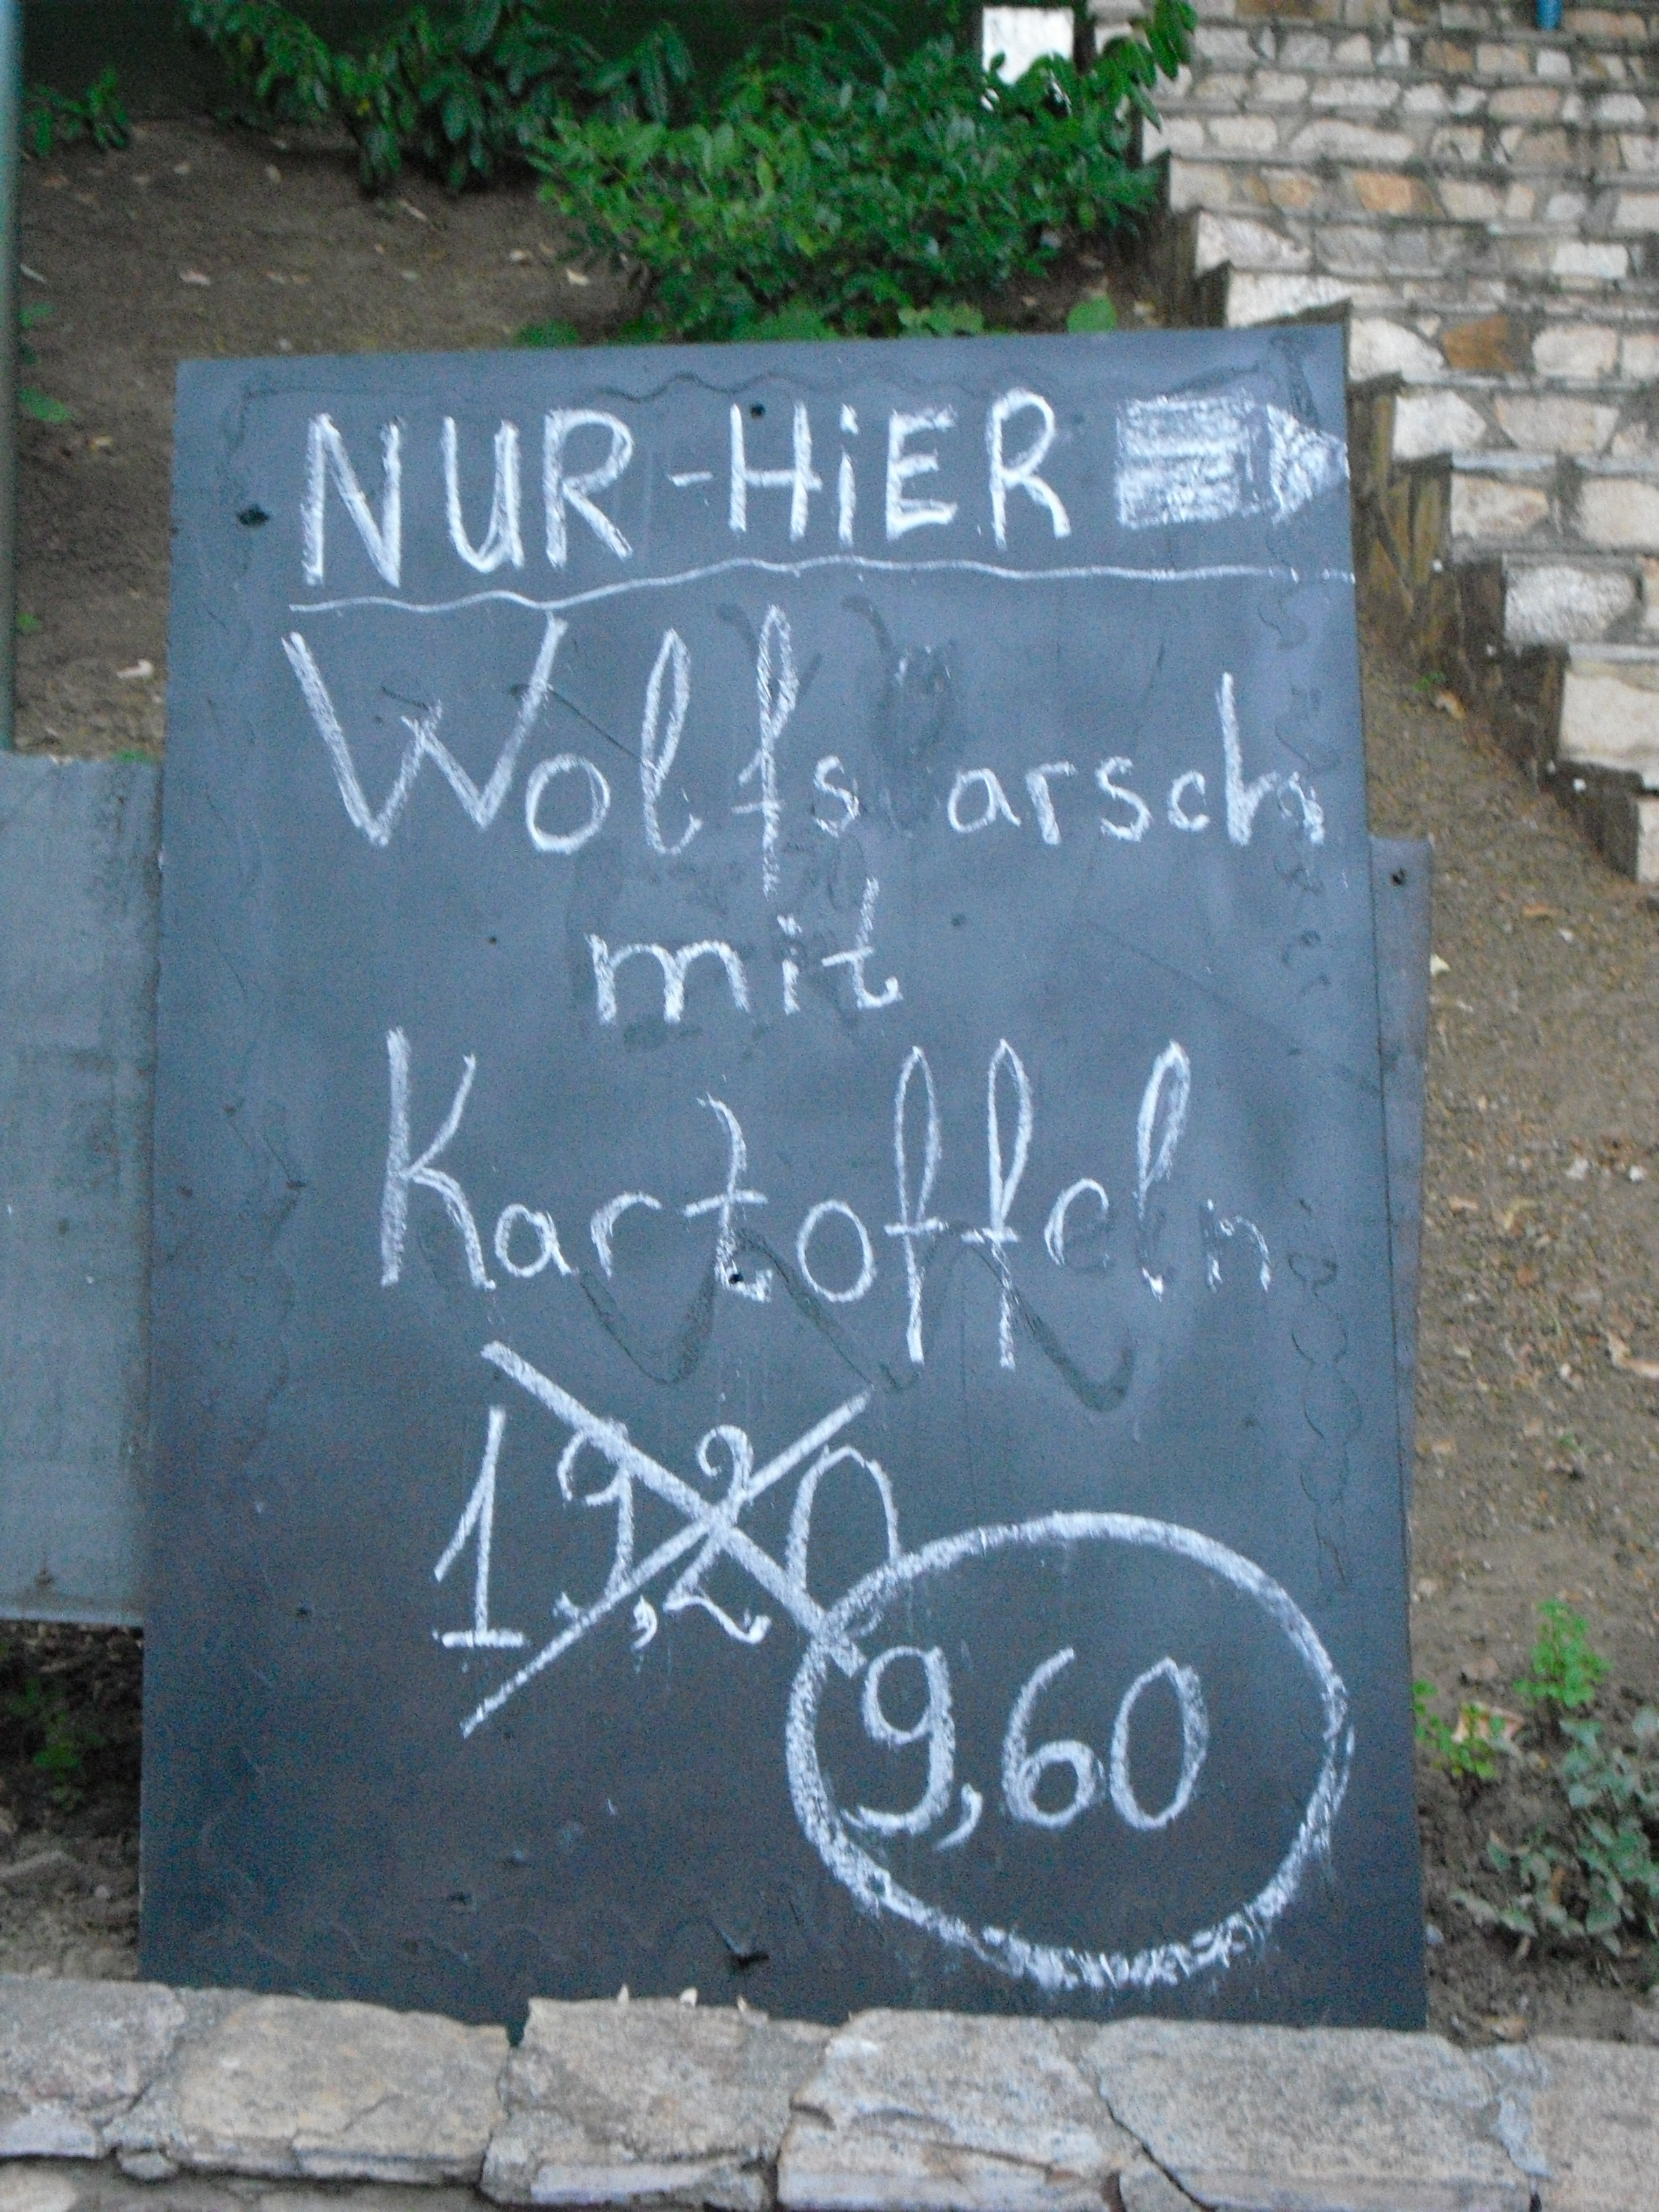 NUR-HiER
Wolfs arsch
mit
Kartoffeln
19,20
9,60